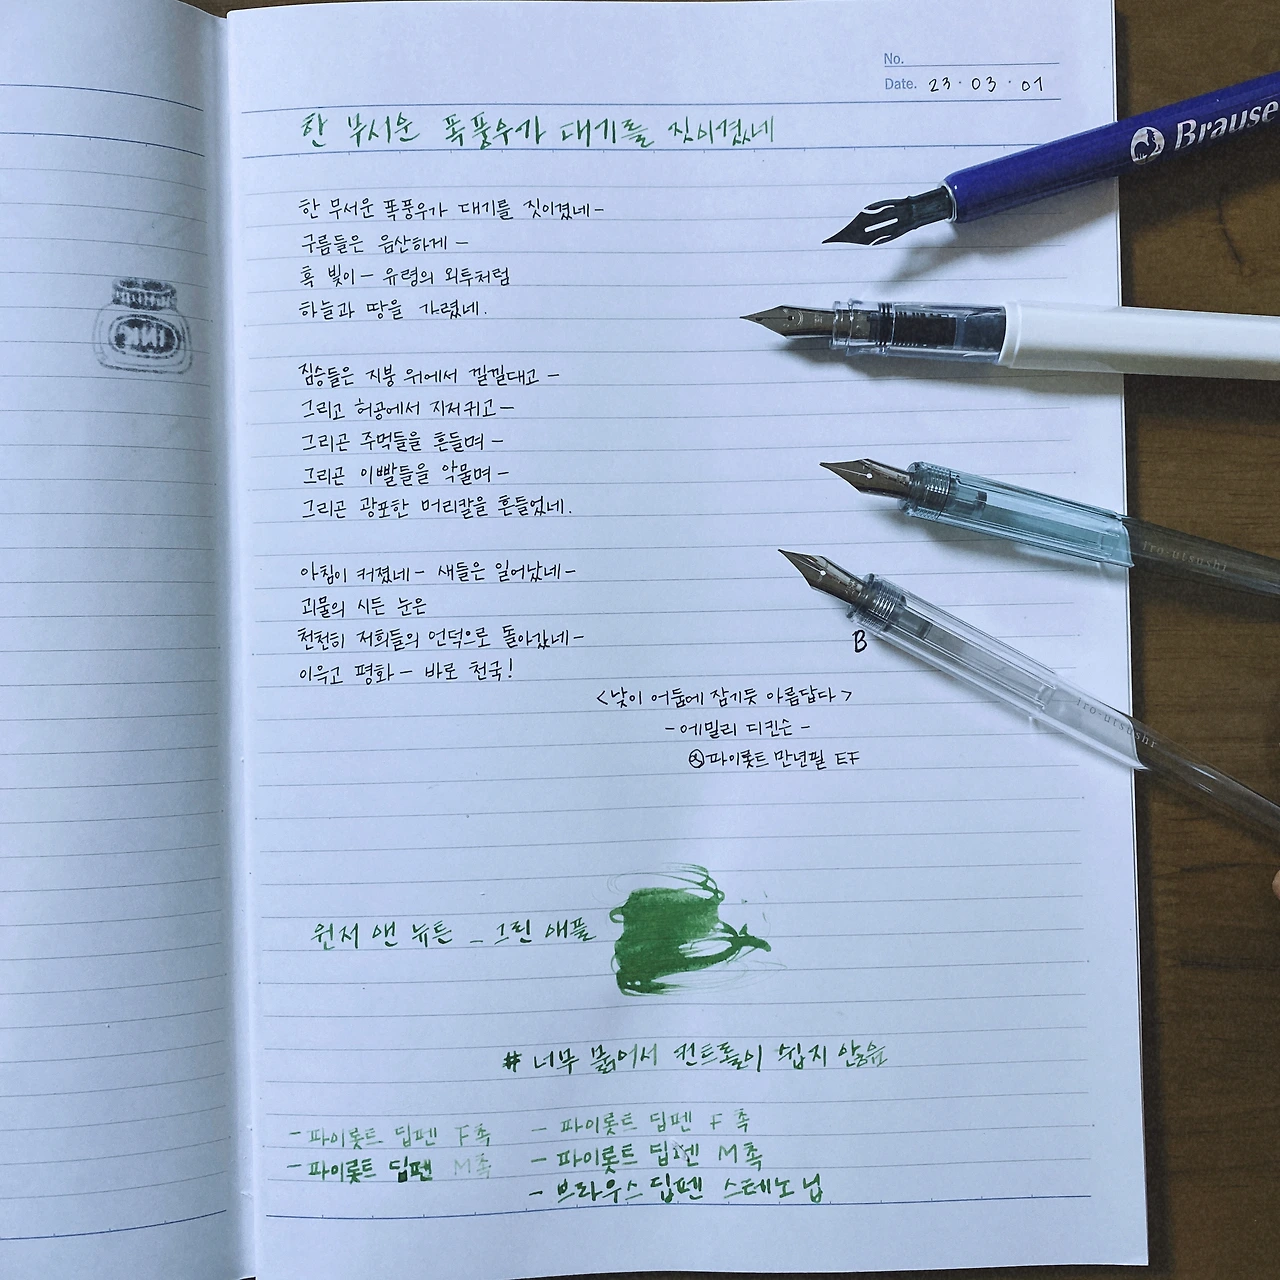 No.
Date. 23 · 03 · 01
한 무서운 폭풍우가 대기를 짓이겼네
한 무서운 폭풍우가 대기를 짓이겼네-
구름들은 음산하게 -
흑 빛이 - 유령의 외투처럼
하늘과 땅을 가렸네.
짐승들은 지붕 위에서 낄낄대고 -
그리고 허공에서 지저귀고 -
그리곤 주먹들을 흔들며 -
그리곤 이빨들을 악물며 -
그리곤 광포한 머리칼을 흔들었네.
아침이 켜졌네 - 새들은 일어났네 -
괴물의 시든 눈은
천천히 저희들의 언덕으로 돌아갔네 -
이윽고 평화 - 바로 천국!
<낮이 어둠에 잠기듯 아름답다>
- 에밀리 디킨슨 -
파이롯트 만년필 EF
원저 앤 뉴튼 _ 그린 애플
# 너무 묽어서 컨트롤이 쉽지 않음
- 파이롯트 딥펜 F촉
- 파이롯트 딥펜 M촉
- 파이롯트 딥펜 F촉
- 파이롯트 딥펜 M촉
- 브라우스 딥펜 스테노 닙
Brause
iro-utsushi
B
iro-utsushi
INK